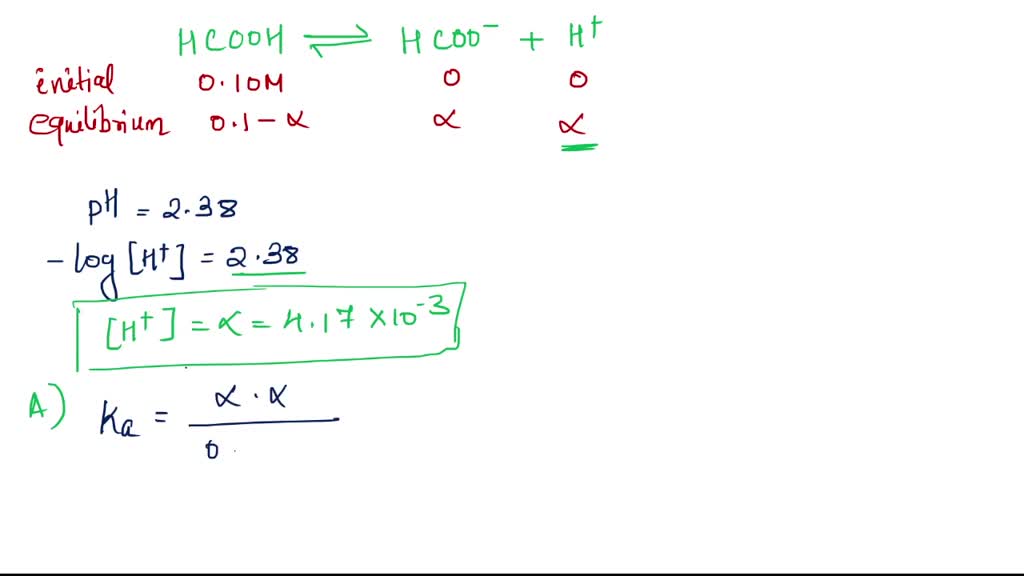 HCOOH ⇌ HCOO⁻ + H⁺
initial 0.10M 0 0
equilibrium 0.1 - α α α
pH = 2.38
- log [H⁺] = 2.38
[H⁺] = α = 4.17 × 10⁻³
A) Ka = α . α
0.